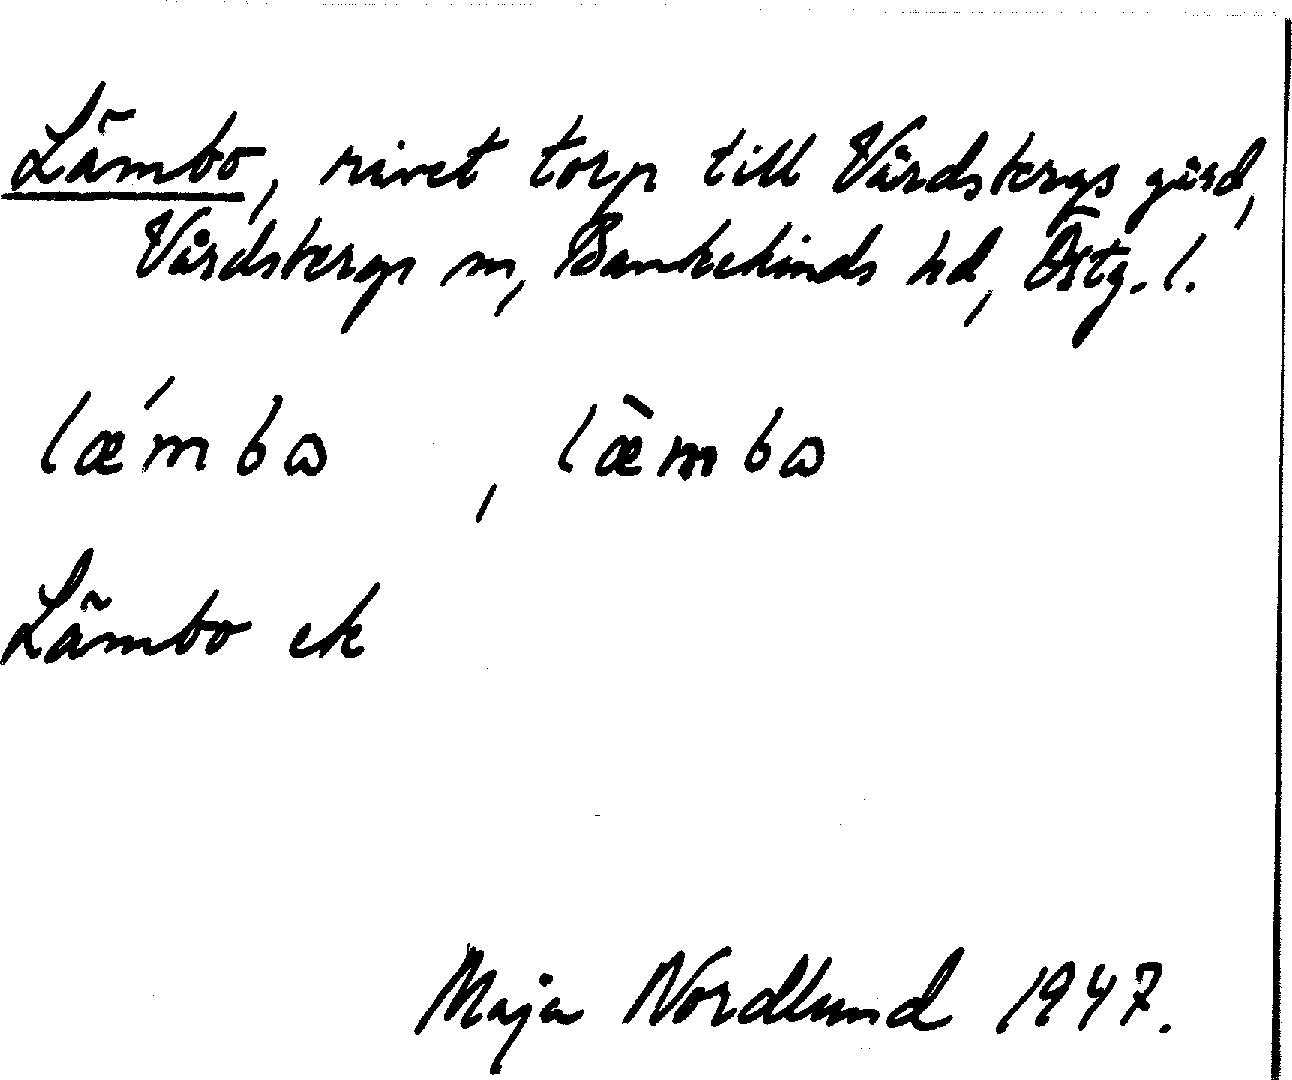 Lämbo, rivet torp till Vårdsbergs gård,
Vårdsbergs sn, Bankekinds hd, Östg. l.
læ´mbɷ , læ̀mbɷ
Lämbo ek
Maja Nordlund 1947.